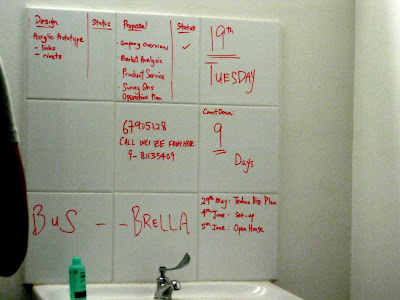 Design
Status
Acrylic Prototype
- links
- rivets
Proposal
Status
- Company Overview ✓
- Market Analysis
- Product Service
- Survey Qns
Operations Plan
19th
TUESDAY
67905128
CALL WEI ZE FROM HERE
9- 81135409
CountDown:
9
Days
BUS - - BRELLA
29th May: Techno Biz Plan
4th June: Set-up
5th June: Open House